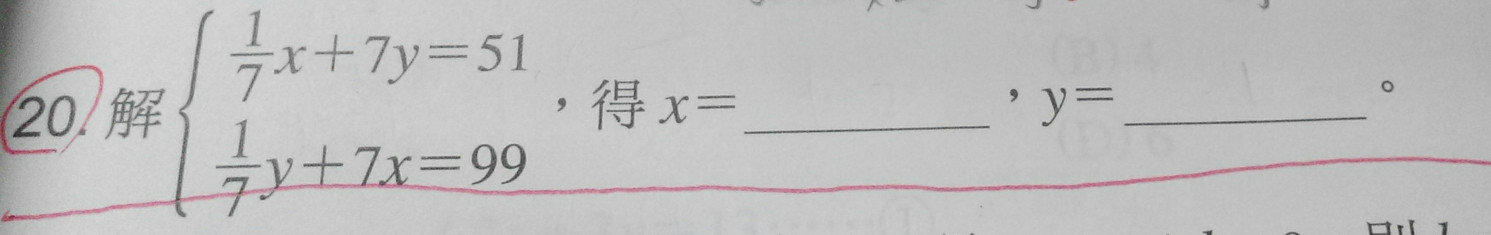 20. 解 { 1/7 x + 7y = 51 , 1/7 y + 7x = 99 ，得 x = ________ ，y = ________ 。